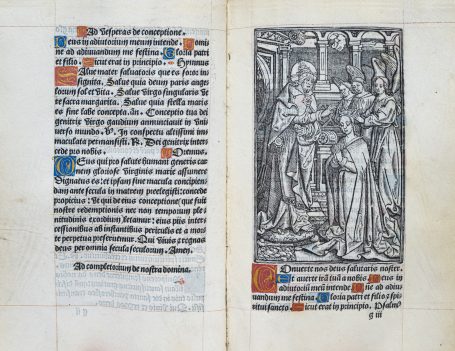 Ad vesperas de conceptione.
Deus in adiutorium meum intende. Domi
ne ad adiuuandum me festina. Gloria patri
et filio. Sicut erat in principio. Hymnus
Salue mater saluatoris que es foris in
signita. Salue quia deum paris ange
lorum sol et vita. Salue virgo singularis vt
te sacra margarita. Salue quia stella maris
es sine labe concepta. añ. Conceptio tua dei
genitrix virgo gaudium annunciauit in vni
uerso mundo. V. In conspectu altissimi im
maculata permansisti. R. Dei genitrix inter
cede pro nobis. Oremus.
Deus qui pro salute humani generis car
nem gloriose virginis marie assumere
dignatus es: et ipsam sine macula concipien
dam ante secula in matrem preelegisti: concede
propicius: vt qui de eius conceptione, que fuit
nostre redemptionis nec non temporum ple
nitudinis exordium letamur: eius piis inter
cessionibus ab instantibus periculis et a mor
te perpetua preseruemur. Qui viuis et regnas
deus per omnia secula seculorum. Amen.
Ad completorium de nostra domina.
Conuerte nos deus salutaris noster.
Et auerte irā tuā a nobis Deus in
adiutoriū meū intende. Dñe ad adiu
uandum me festina Gloria patri et filio et spi
ritui sancto. Sicut erat in principio. Psalm9
g iii